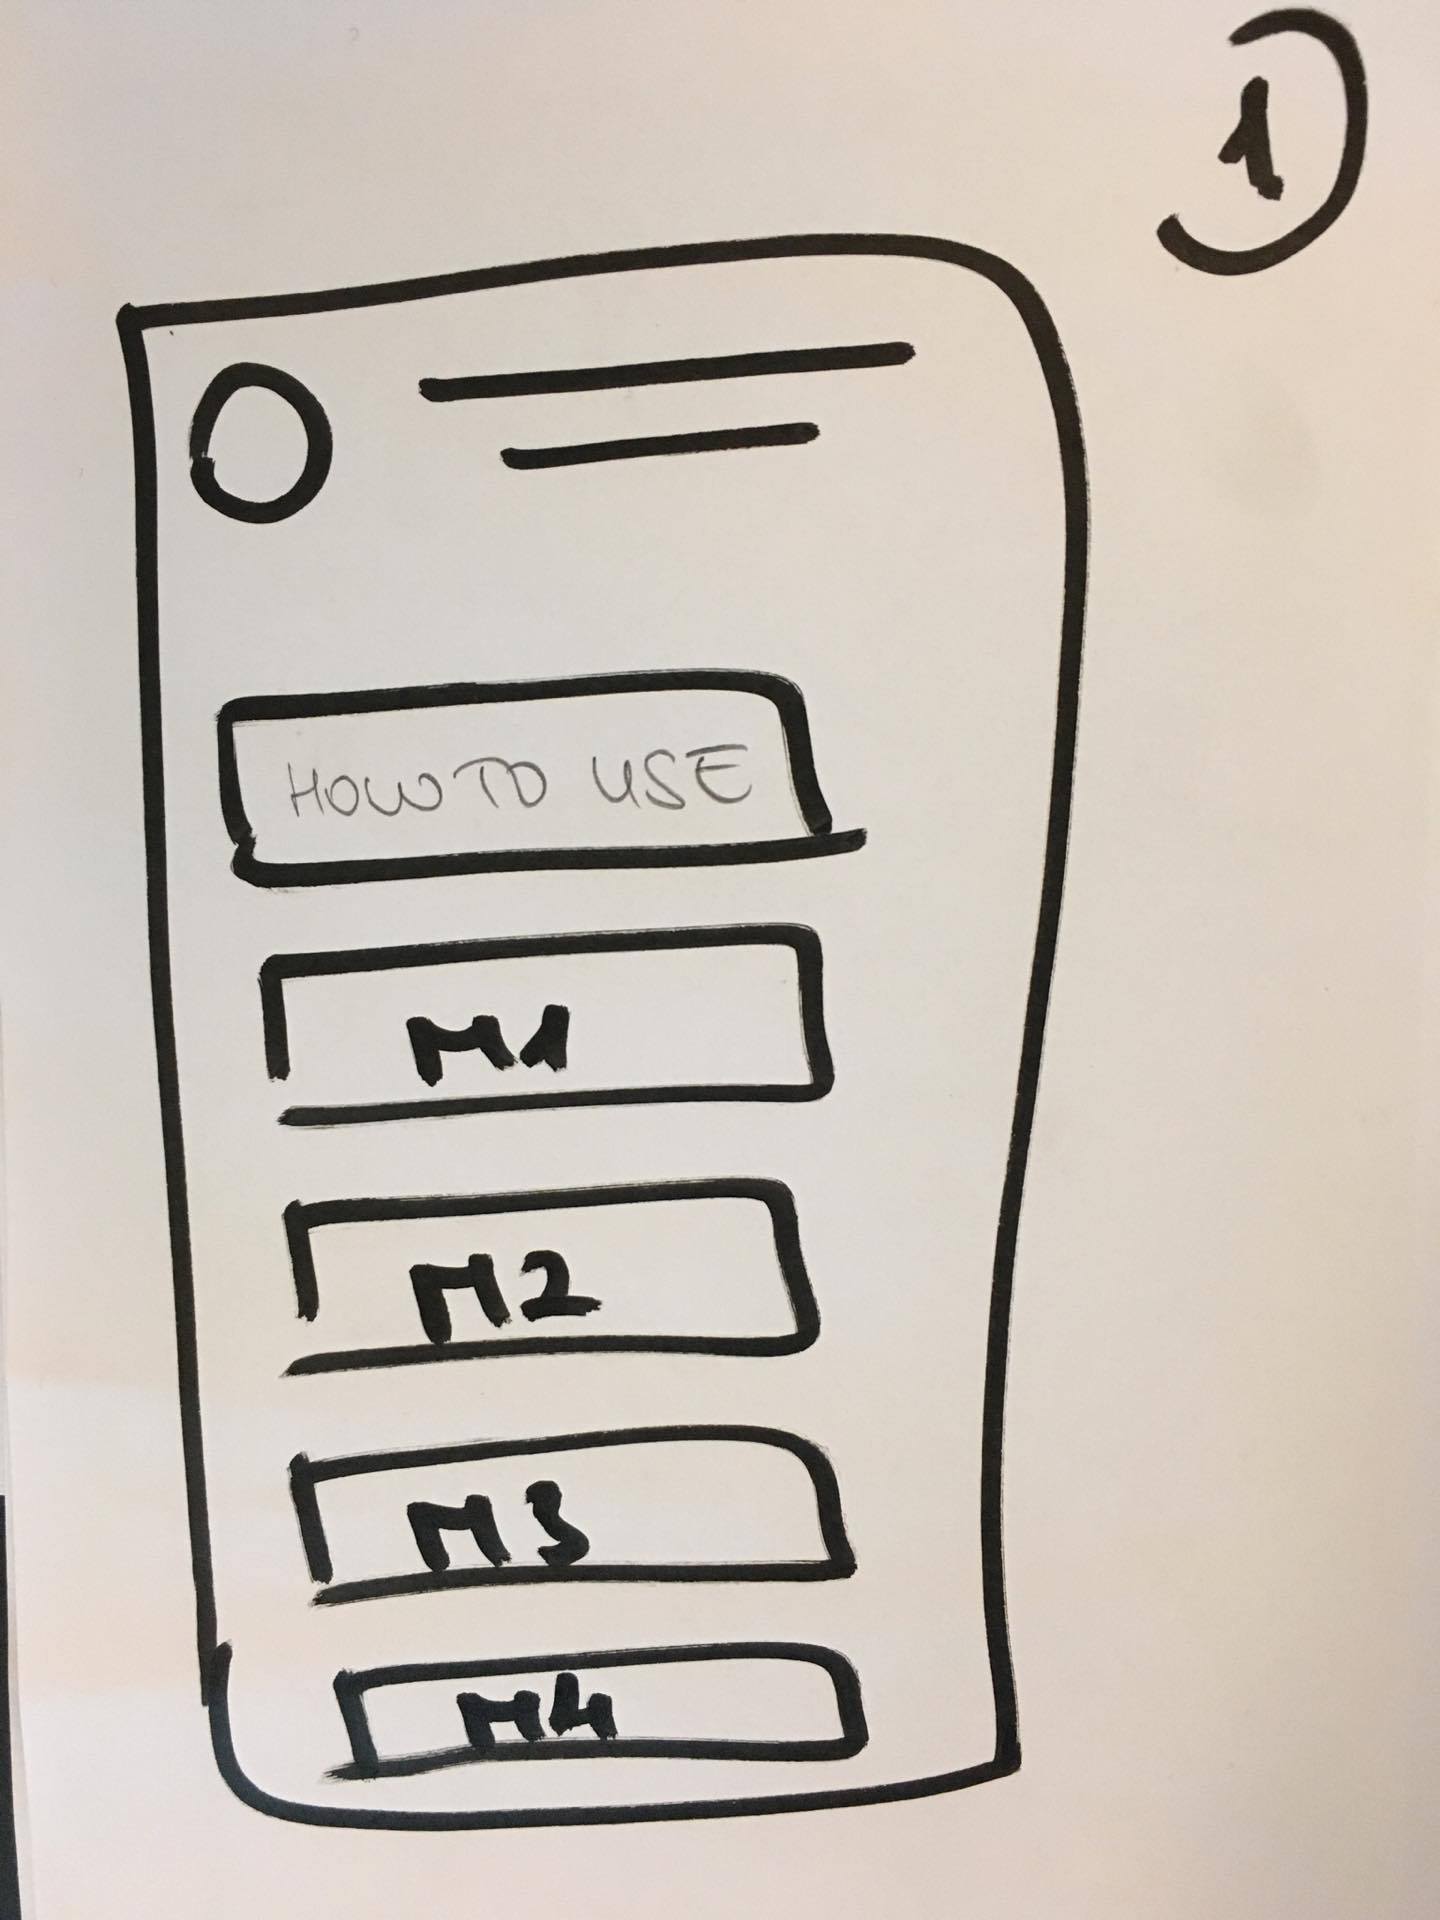 1
HOW TO USE
M1
M2
M3
M4